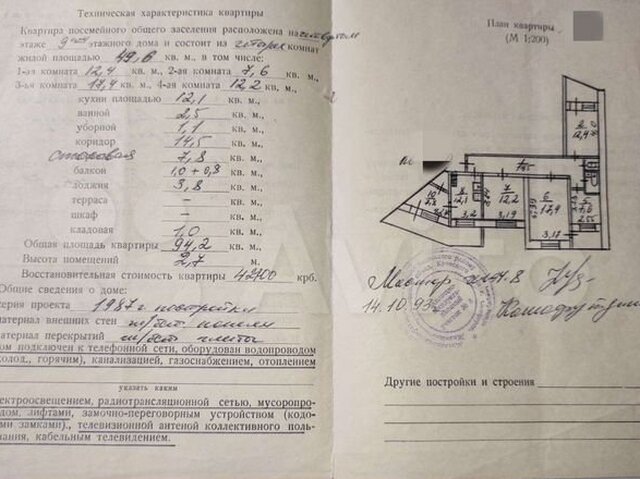 Техническая характеристика квартиры
Квартира посемейного общего заселения расположена на четвертом
этаже 9 этажного дома и состоит из четырех комнат
жилой площадью 49,6 кв. м., в том числе:
1-ая комната 12,4 кв. м., 2-ая комната 7,6 кв. м.,
3-ья комната 17,4 кв. м., 4-ая комната 12,2 кв. м.,
кухни площадью 12,1 кв. м.
ванной 2,5 кв. м.,
уборной 1,1 кв. м.,
коридор 14,5 кв. м.,
столовая 7,8 кв. м.,
балкон 1,0 + 0,8 кв. м.,
лоджия 3,8 кв. м.,
терраса – кв. м.,
шкаф – кв. м.,
кладовая 1,0 кв. м.,
Общая площадь квартиры 94,2 кв. м.,
Высота помещений 2,7 м.
Восстановительная стоимость квартиры крб.
Общие сведения о доме:
ерия проекта 1987 г. постройки
атериал внешних стен ж/бет. панели
атериал перекрытий ж/бет. плиты
ом подключен к телефонной сети, оборудован водопроводом
олод., горячим), канализацией, газоснабжением, отоплением
указать каким
ектроосвещением, радиотрансляционной сетью, мусоропро-
дом, лифтами, замочно-переговорным устройством (кодо-
ми замками)., телевизионной антеной коллективного поль-
ания, кабельным телевидением.
План квартиры
(М 1:200)
2
12,4
1
7
12,2
6
17,4
5
7,6
12,1
3.2
3.19
3.18
2.55
Мастер
14.10.93
Другие постройки и строения